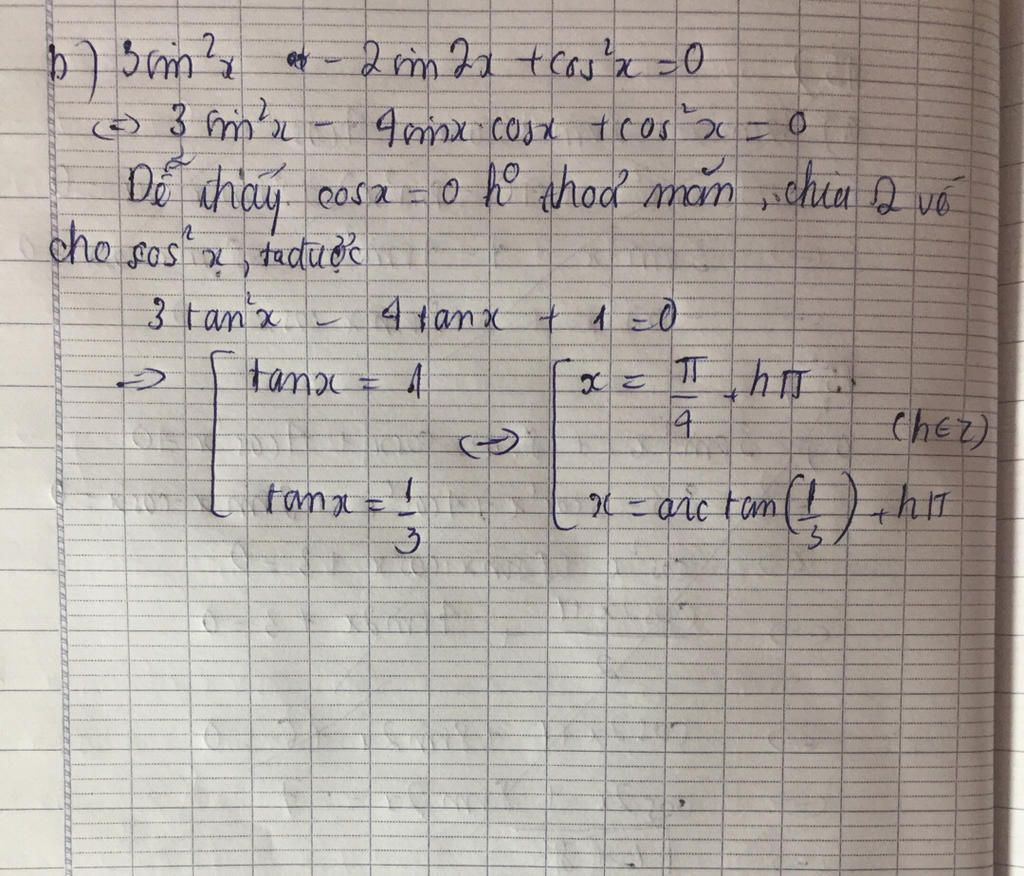 b) 3sin²x - 2sin2x + cos²x = 0
<=> 3sin²x - 4sinx.cosx + cos²x = 0
Dễ thấy cosx = 0 k° thoả mãn, chia 2 vế
cho cos²x, ta được
3tan²x - 4tanx + 1 = 0
=> [ tanx = 1 <=> [ x = π/4 + kπ
(k∈Z)
tanx = 1/3 x = arctan(1/3) + kπ